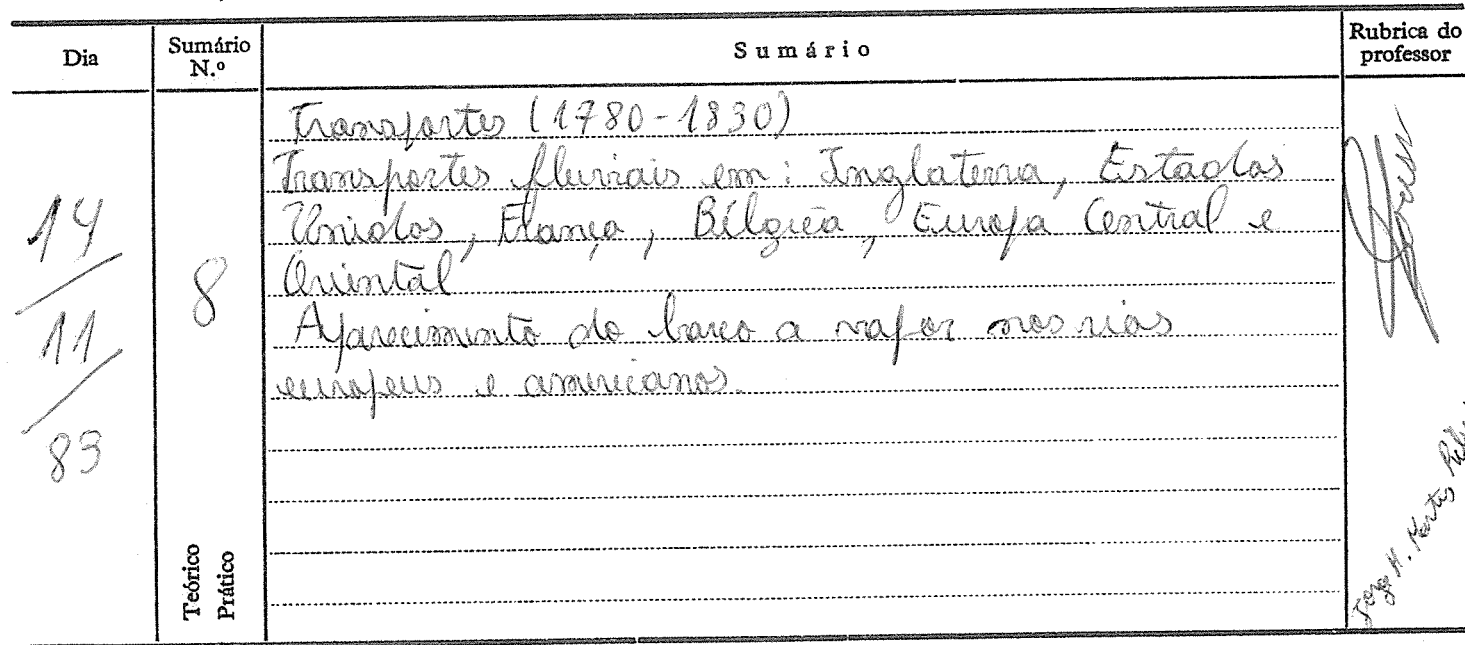 Dia
Sumário N.º
Sumário
Rubrica do professor
14/11/83
8
Teórico
Prático
Transportes (1780-1830)
Transportes fluviais em: Inglaterra, Estados
Unidos, França, Bélgica, Europa Central e
Oriental
Aparecimento do barco a vapor nos rios
europeus e americanos.
Jorge M. Martins